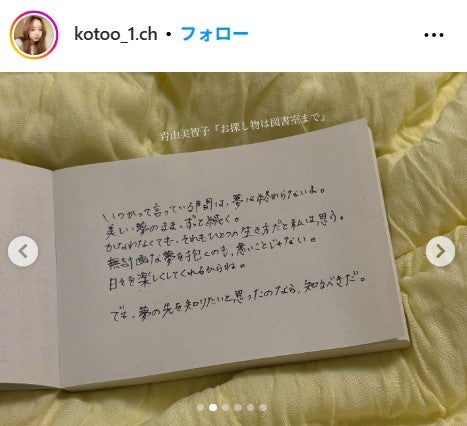 kotoo_1.ch • フォロー
青山美智子『お探し物は図書室まで』
いつかって言っている間は、夢は終わらないよ。
美しい夢のまま、ずっと続く。
かなわなくても、それもひとつの生き方だと私は思う。
無計画な夢を抱くのも、悪いことじゃない。
日々を楽しくしてくれるからね。
でも、夢の先を知りたいと思ったのなら、知るべきだ。